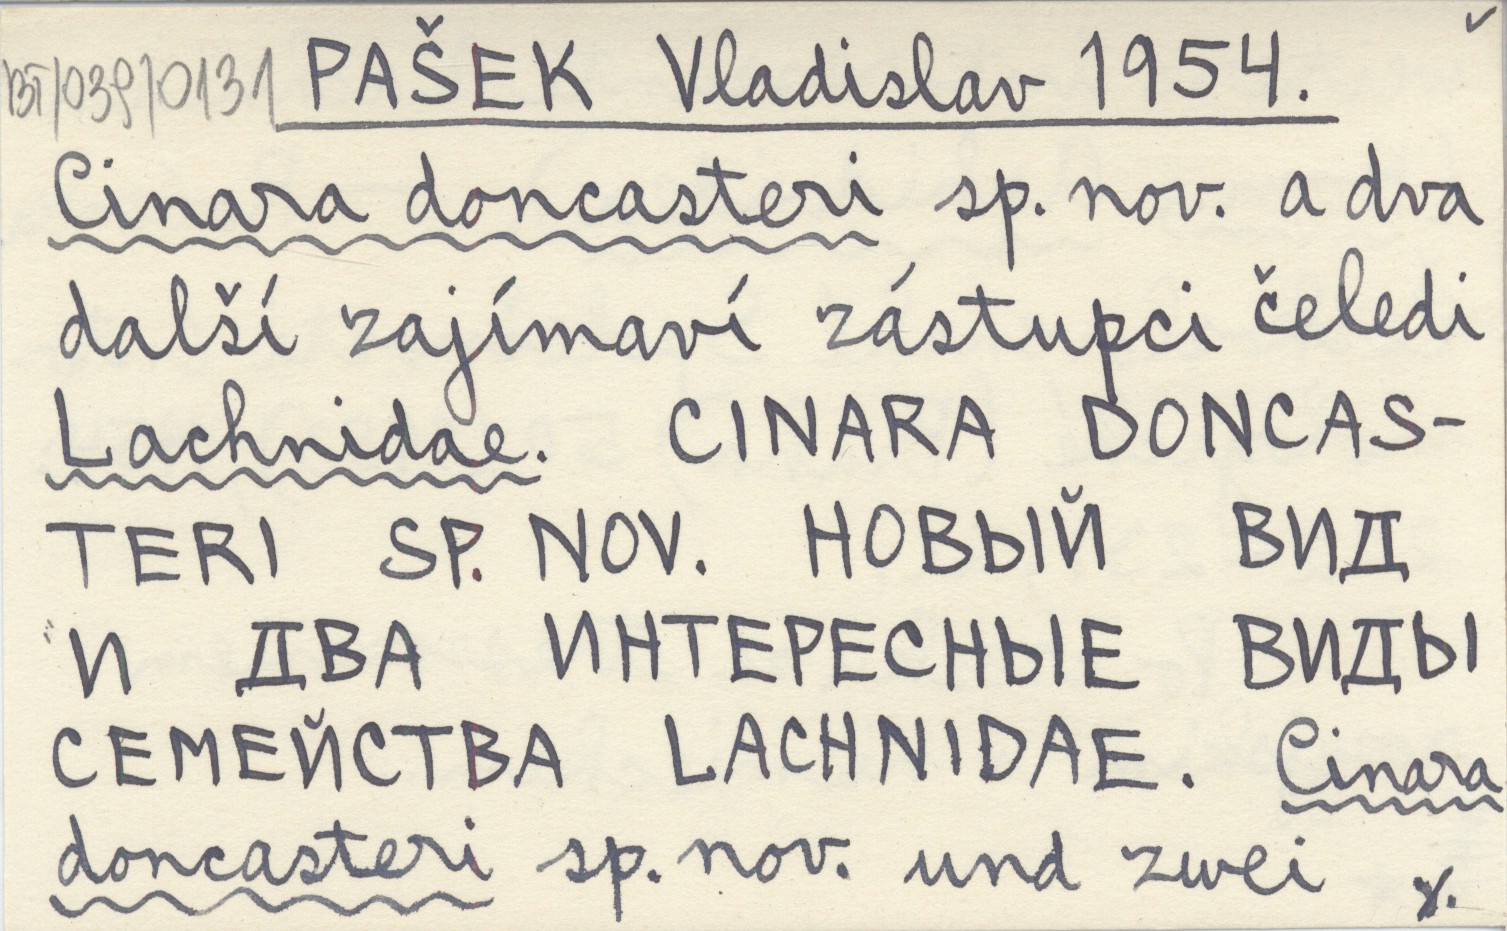 BT/039/0131 PAŠEK Vladislav 1954.
Cinara doncasteri sp. nov. a dva
další zajímaví zástupci čeledi
Lachnidae. CINARA DONCAS-
TERI SP. NOV. НОВЫЙ ВИД
И ДВА ИНТЕРЕСНЫЕ ВИДЫ
СЕМЕЙСТВА LACHNIDAE. Cinara
doncasteri sp. nov. und zwei